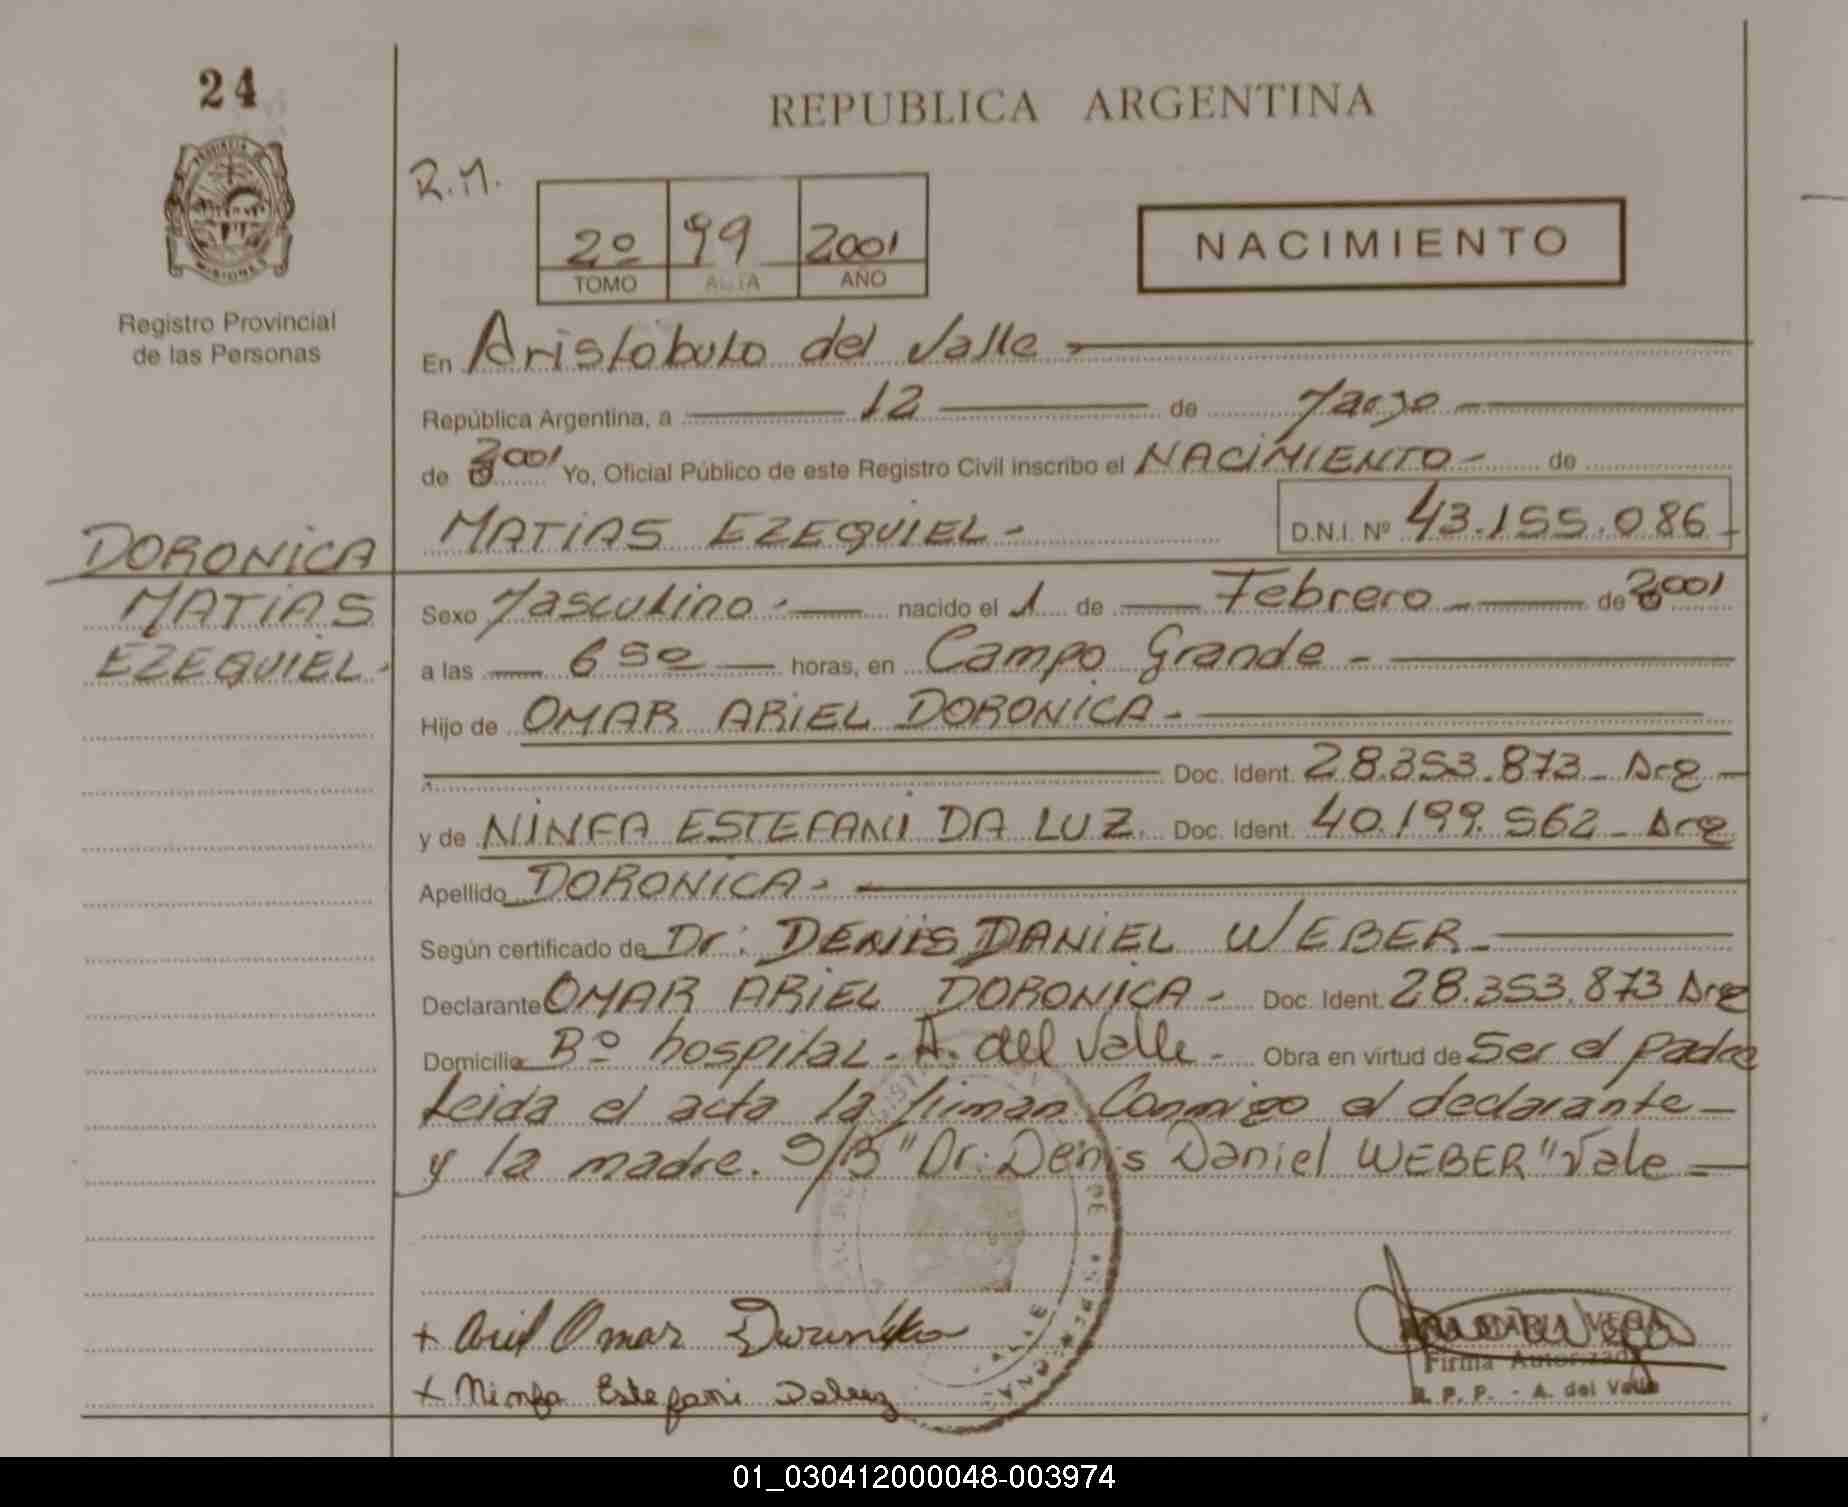 24
PROVINCIA DE
MISIONES
Registro Provincial
de las Personas
REPUBLICA ARGENTINA
R.M.
2º 99 2001
TOMO ACTA AÑO
NACIMIENTO
En Aristobulo del Valle
República Argentina, a 12 de Marzo
de 2001 Yo, Oficial Público de este Registro Civil inscribo el NACIMIENTO - de
MATIAS EZEQUIEL - D.N.I. Nº 43.155.086 -
DORONICA
MATIAS
EZEQUIEL -
Sexo Masculino - nacido el 1 de Febrero - de 2001
a las 6 50 horas, en Campo Grande -
Hijo de OMAR ARIEL DORONICA -
Doc. Ident. 28.353.873 - Arg -
y de NINFA ESTEFANI DA LUZ Doc. Ident. 40.199.562 - Arg
Apellido DORONICA -
Según certificado de Dr: DENIS DANIEL WEBER -
Declarante OMAR ARIEL DORONICA - Doc. Ident. 28.353.873 Arg
Domicilio Bº hospital - A. del Valle - Obra en virtud de Ser el padre
Leida el acta la firman Conmigo el declarante -
y la madre. S/B "Dr. Denis Daniel WEBER" Vale -
+ Ariel Omar
+ Ninfa Estefani Daluz
ANA MARIA VEGA
Firma Autorizada
R. P. P. - A. del Valle
01_030412000048-003974